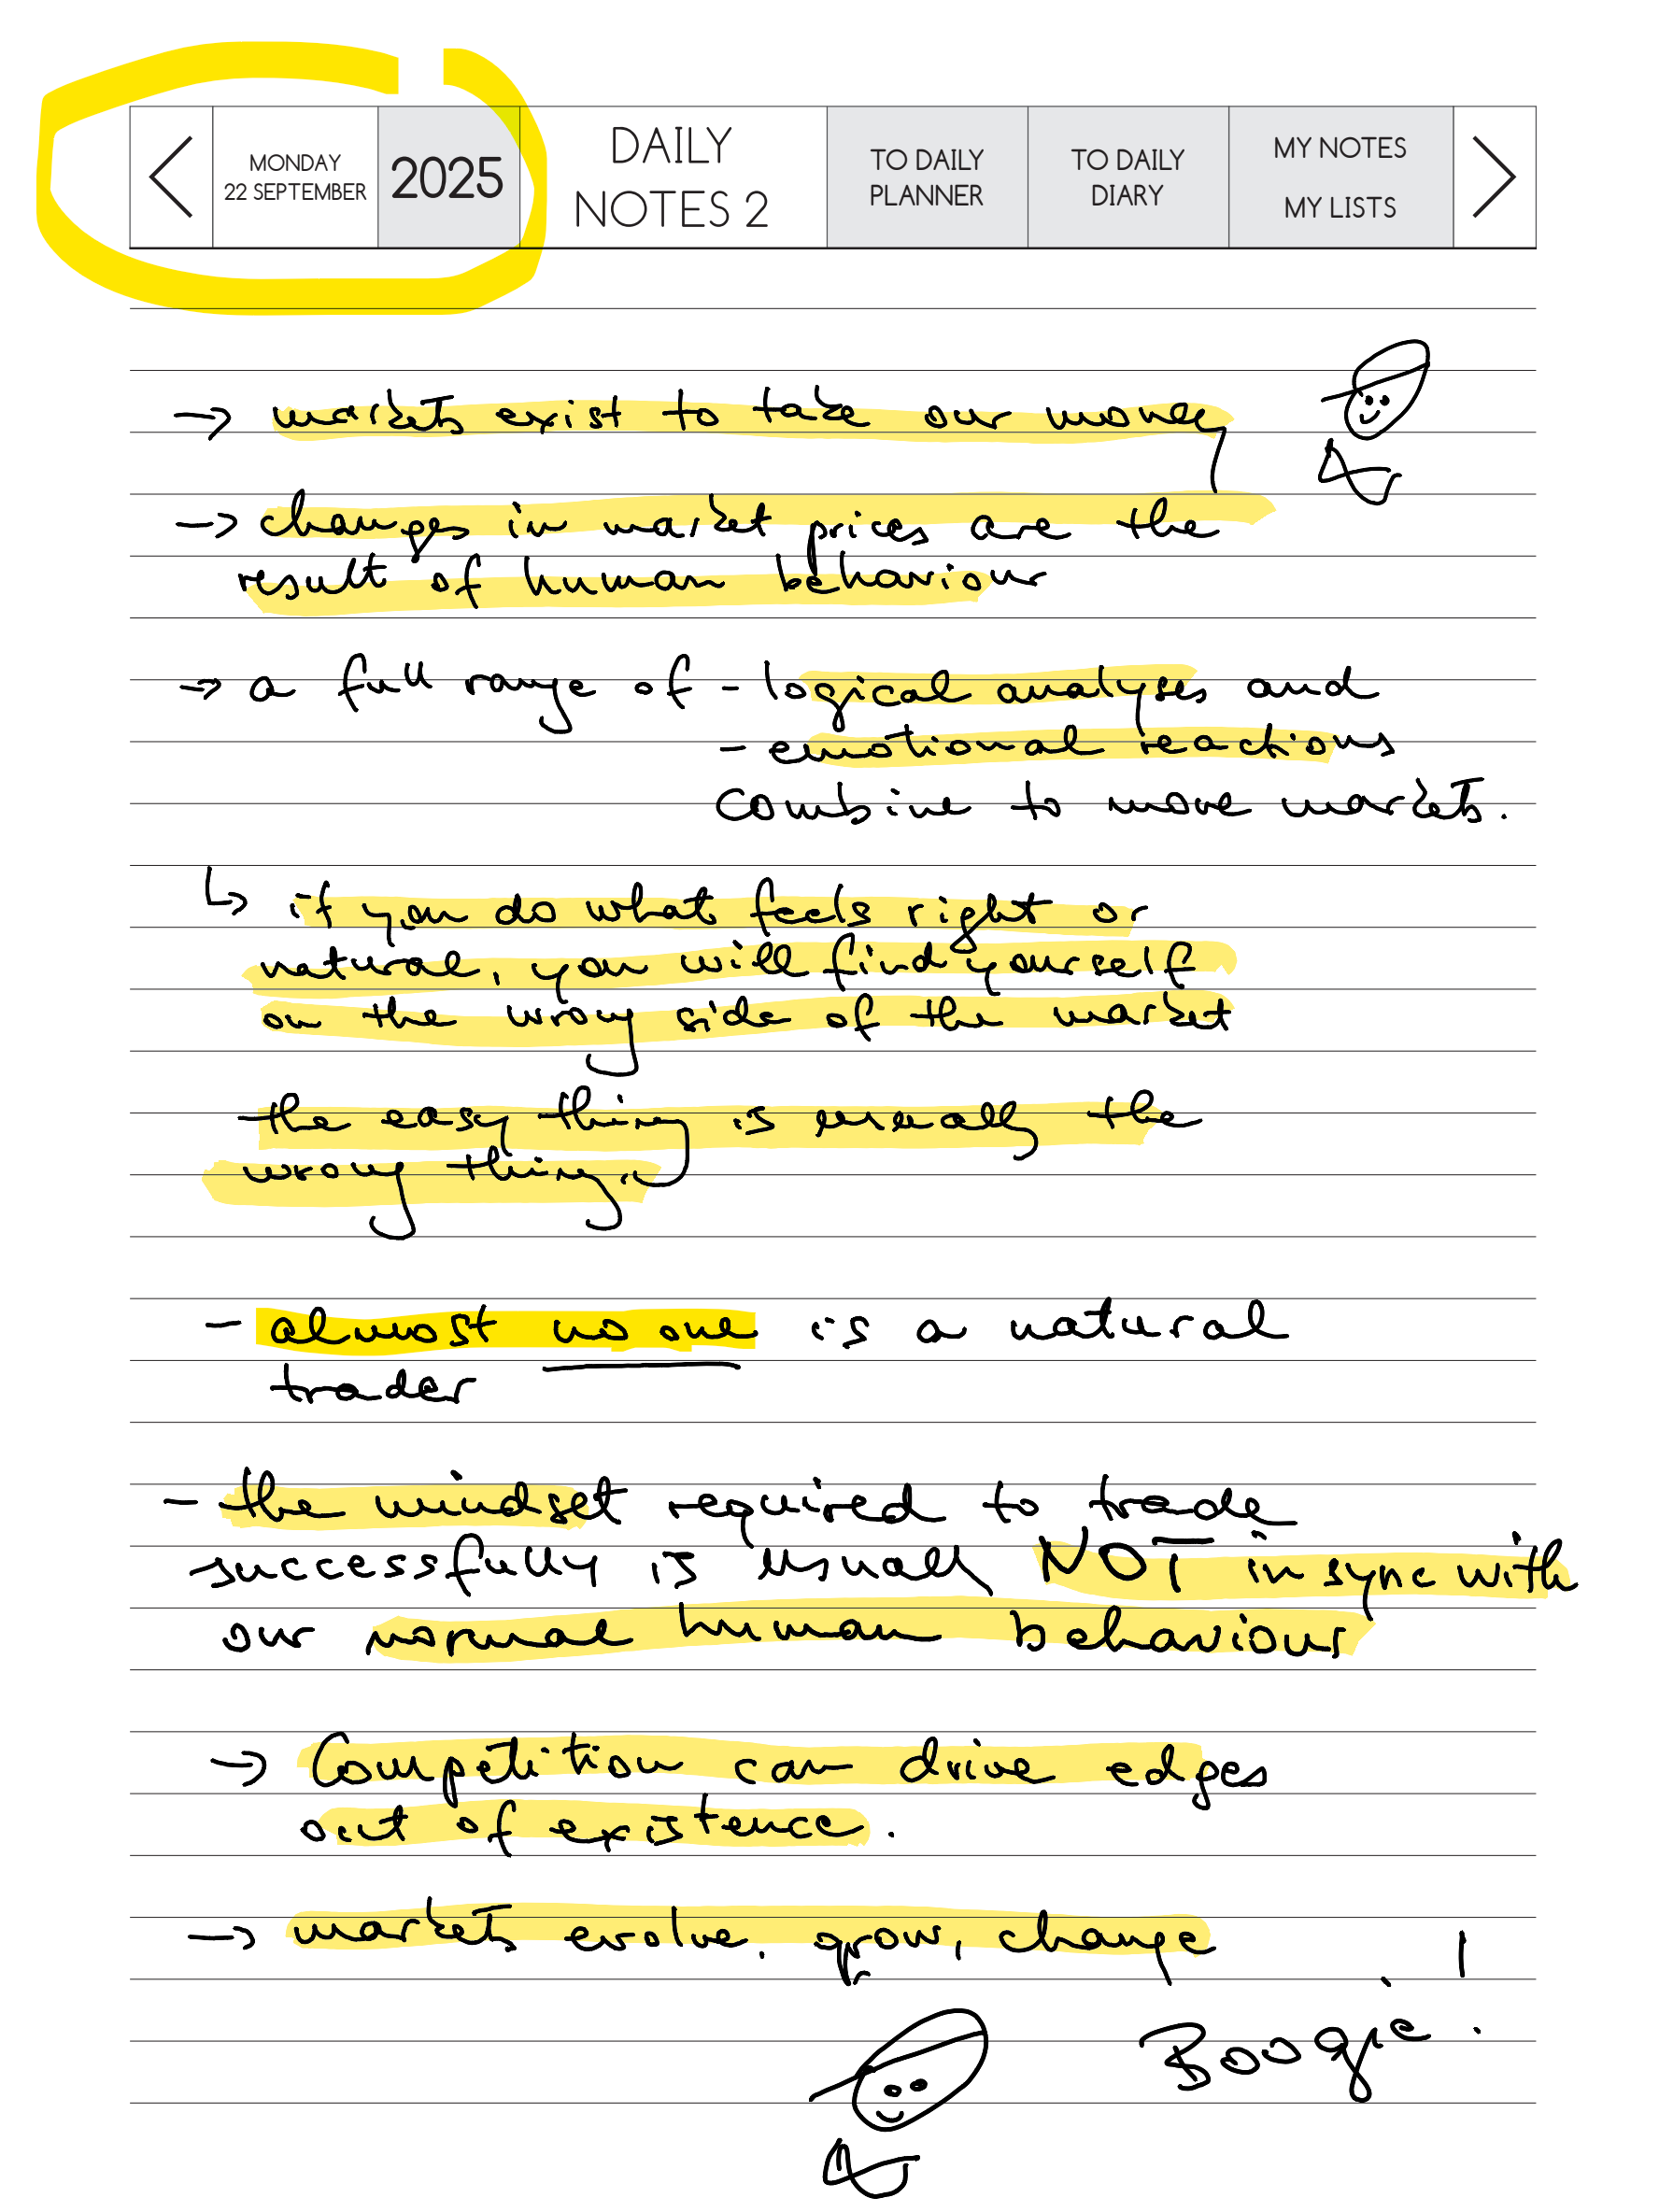 MONDAY
22 SEPTEMBER
2025
DAILY
NOTES 2
TO DAILY
PLANNER
TO DAILY
DIARY
MY NOTES
MY LISTS
→ markets exist to take our money
→ changes in market prices are the
result of human behaviour
→ a full range of - logical analyses and
- emotional reactions
combine to move markets.
↳ if you do what feels right or
natural, you will find yourself
on the wrong side of the market
the easy thing is usually the
wrong thing.
- almost no one is a natural
trader
- the mindset required to trade
successfully is usually NOT in sync with
our normal human behaviour
→ Competition can drive edges
out of existence.
→ markets evolve, grow, change
Boogie!